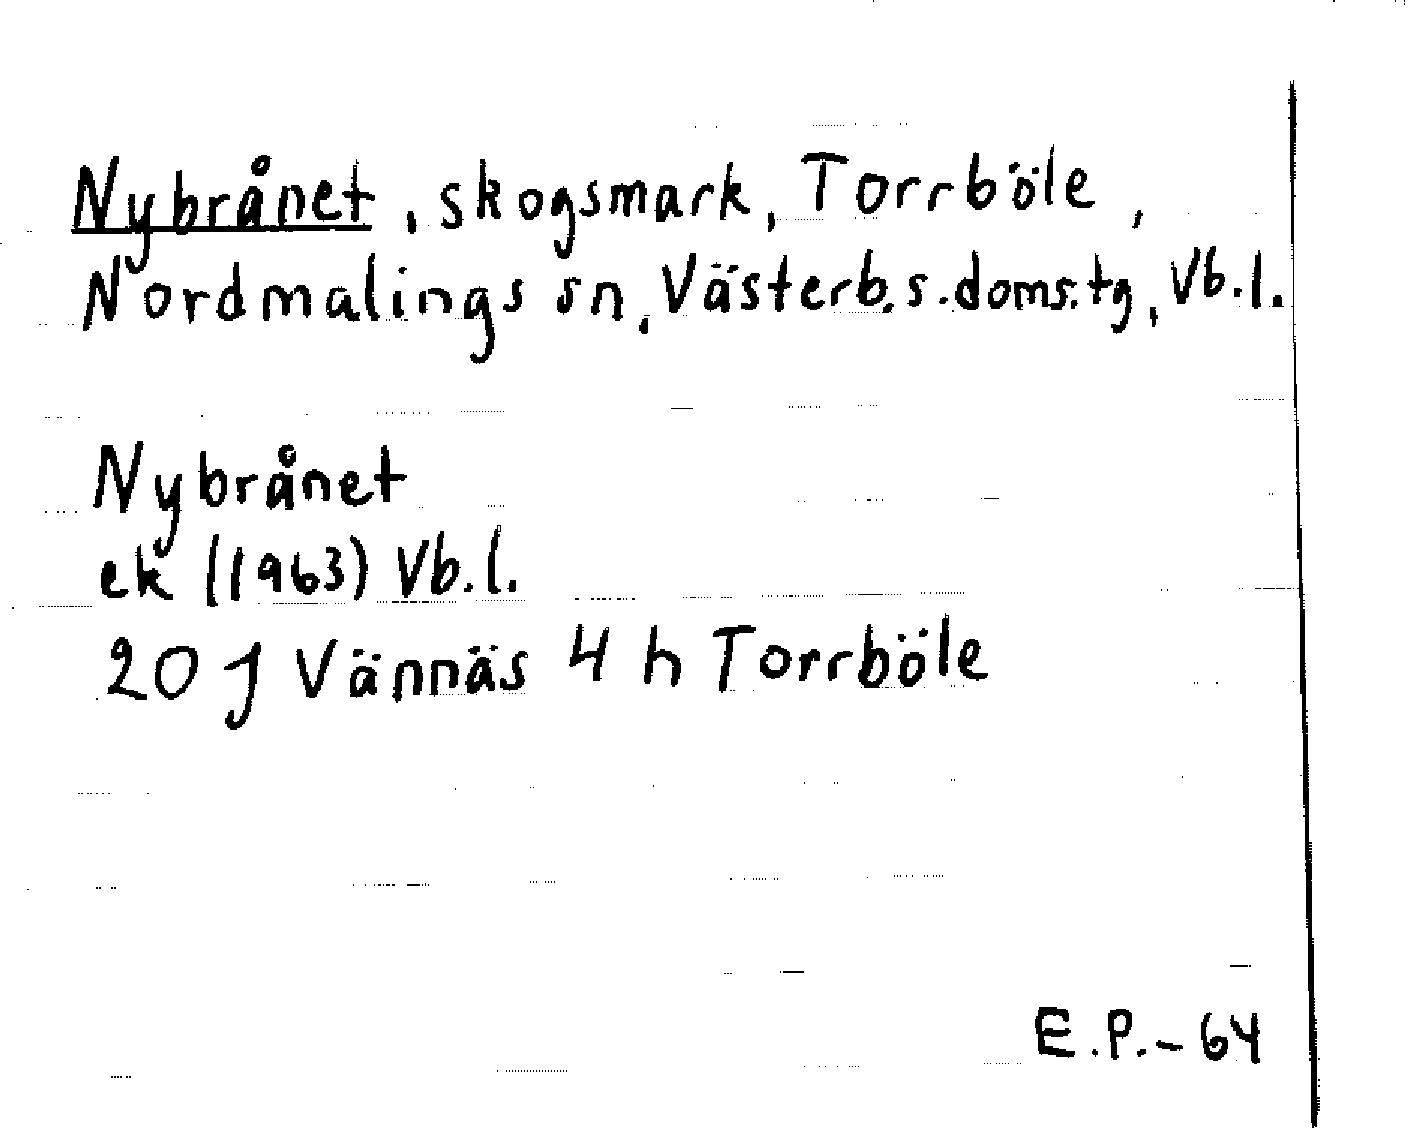 Nybrånet, skogsmark, Torrböle,
Nordmalings sn, Västerb.s.doms.tg, Vb.l.
Nybrånet
ek (1963) Vb.l.
20 J Vännäs 4 h Torrböle
E.P.-64